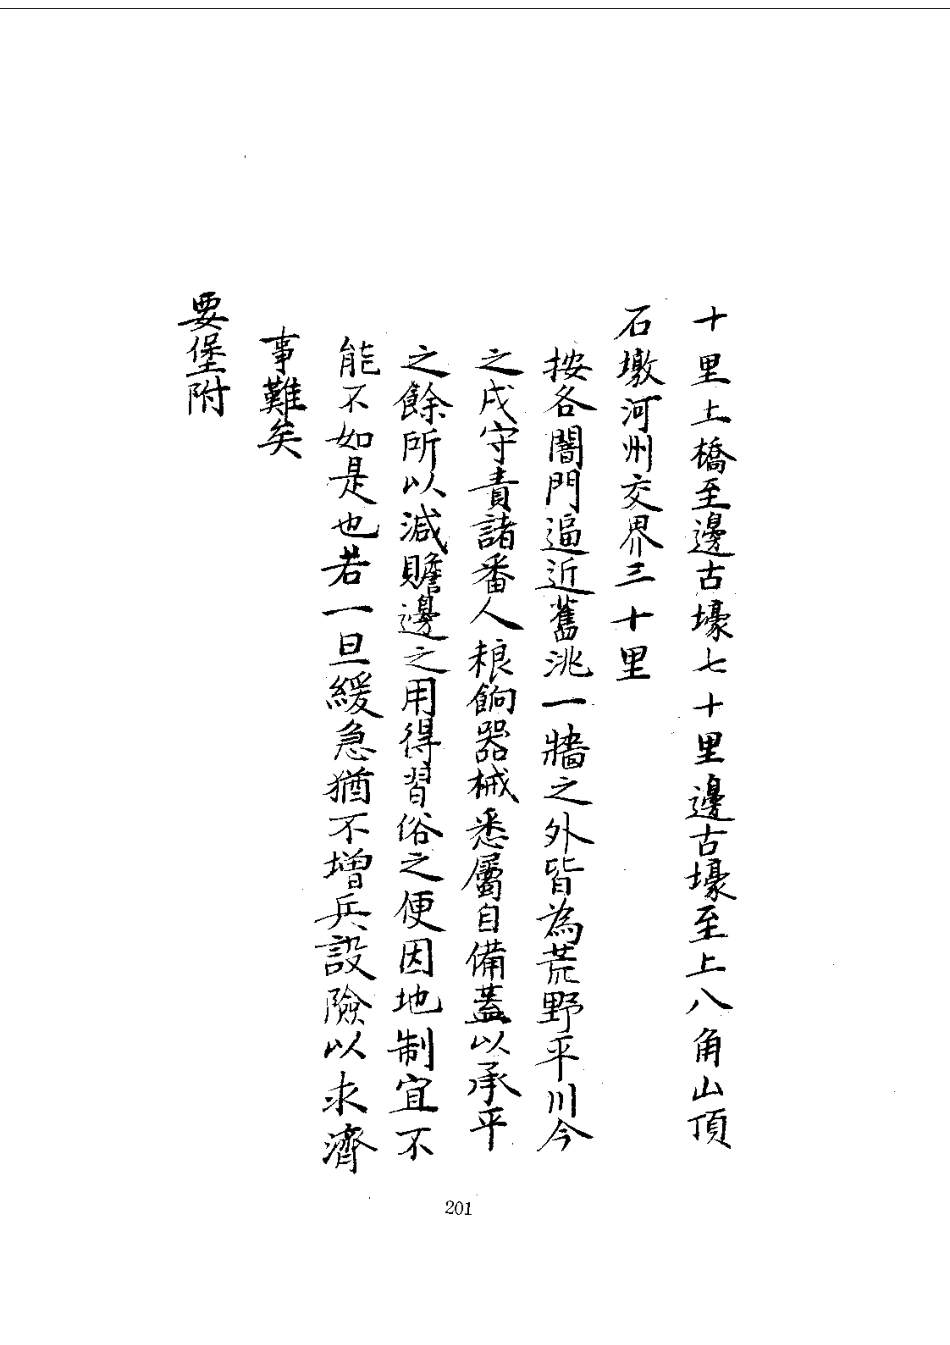 十里土橋至邊古壕七十里邊古壕至上八角山頂
石墩河州交界三十里
按各闇門逼近舊洮一牆之外皆為荒野平川今
之戍守責諸番人粮餉器械悉屬自備蓋以承平
之餘所以減贍邊之用得習俗之便因地制宜不
能不如是也若一旦緩急猶不增兵設險以求濟
事難矣
要堡附
201